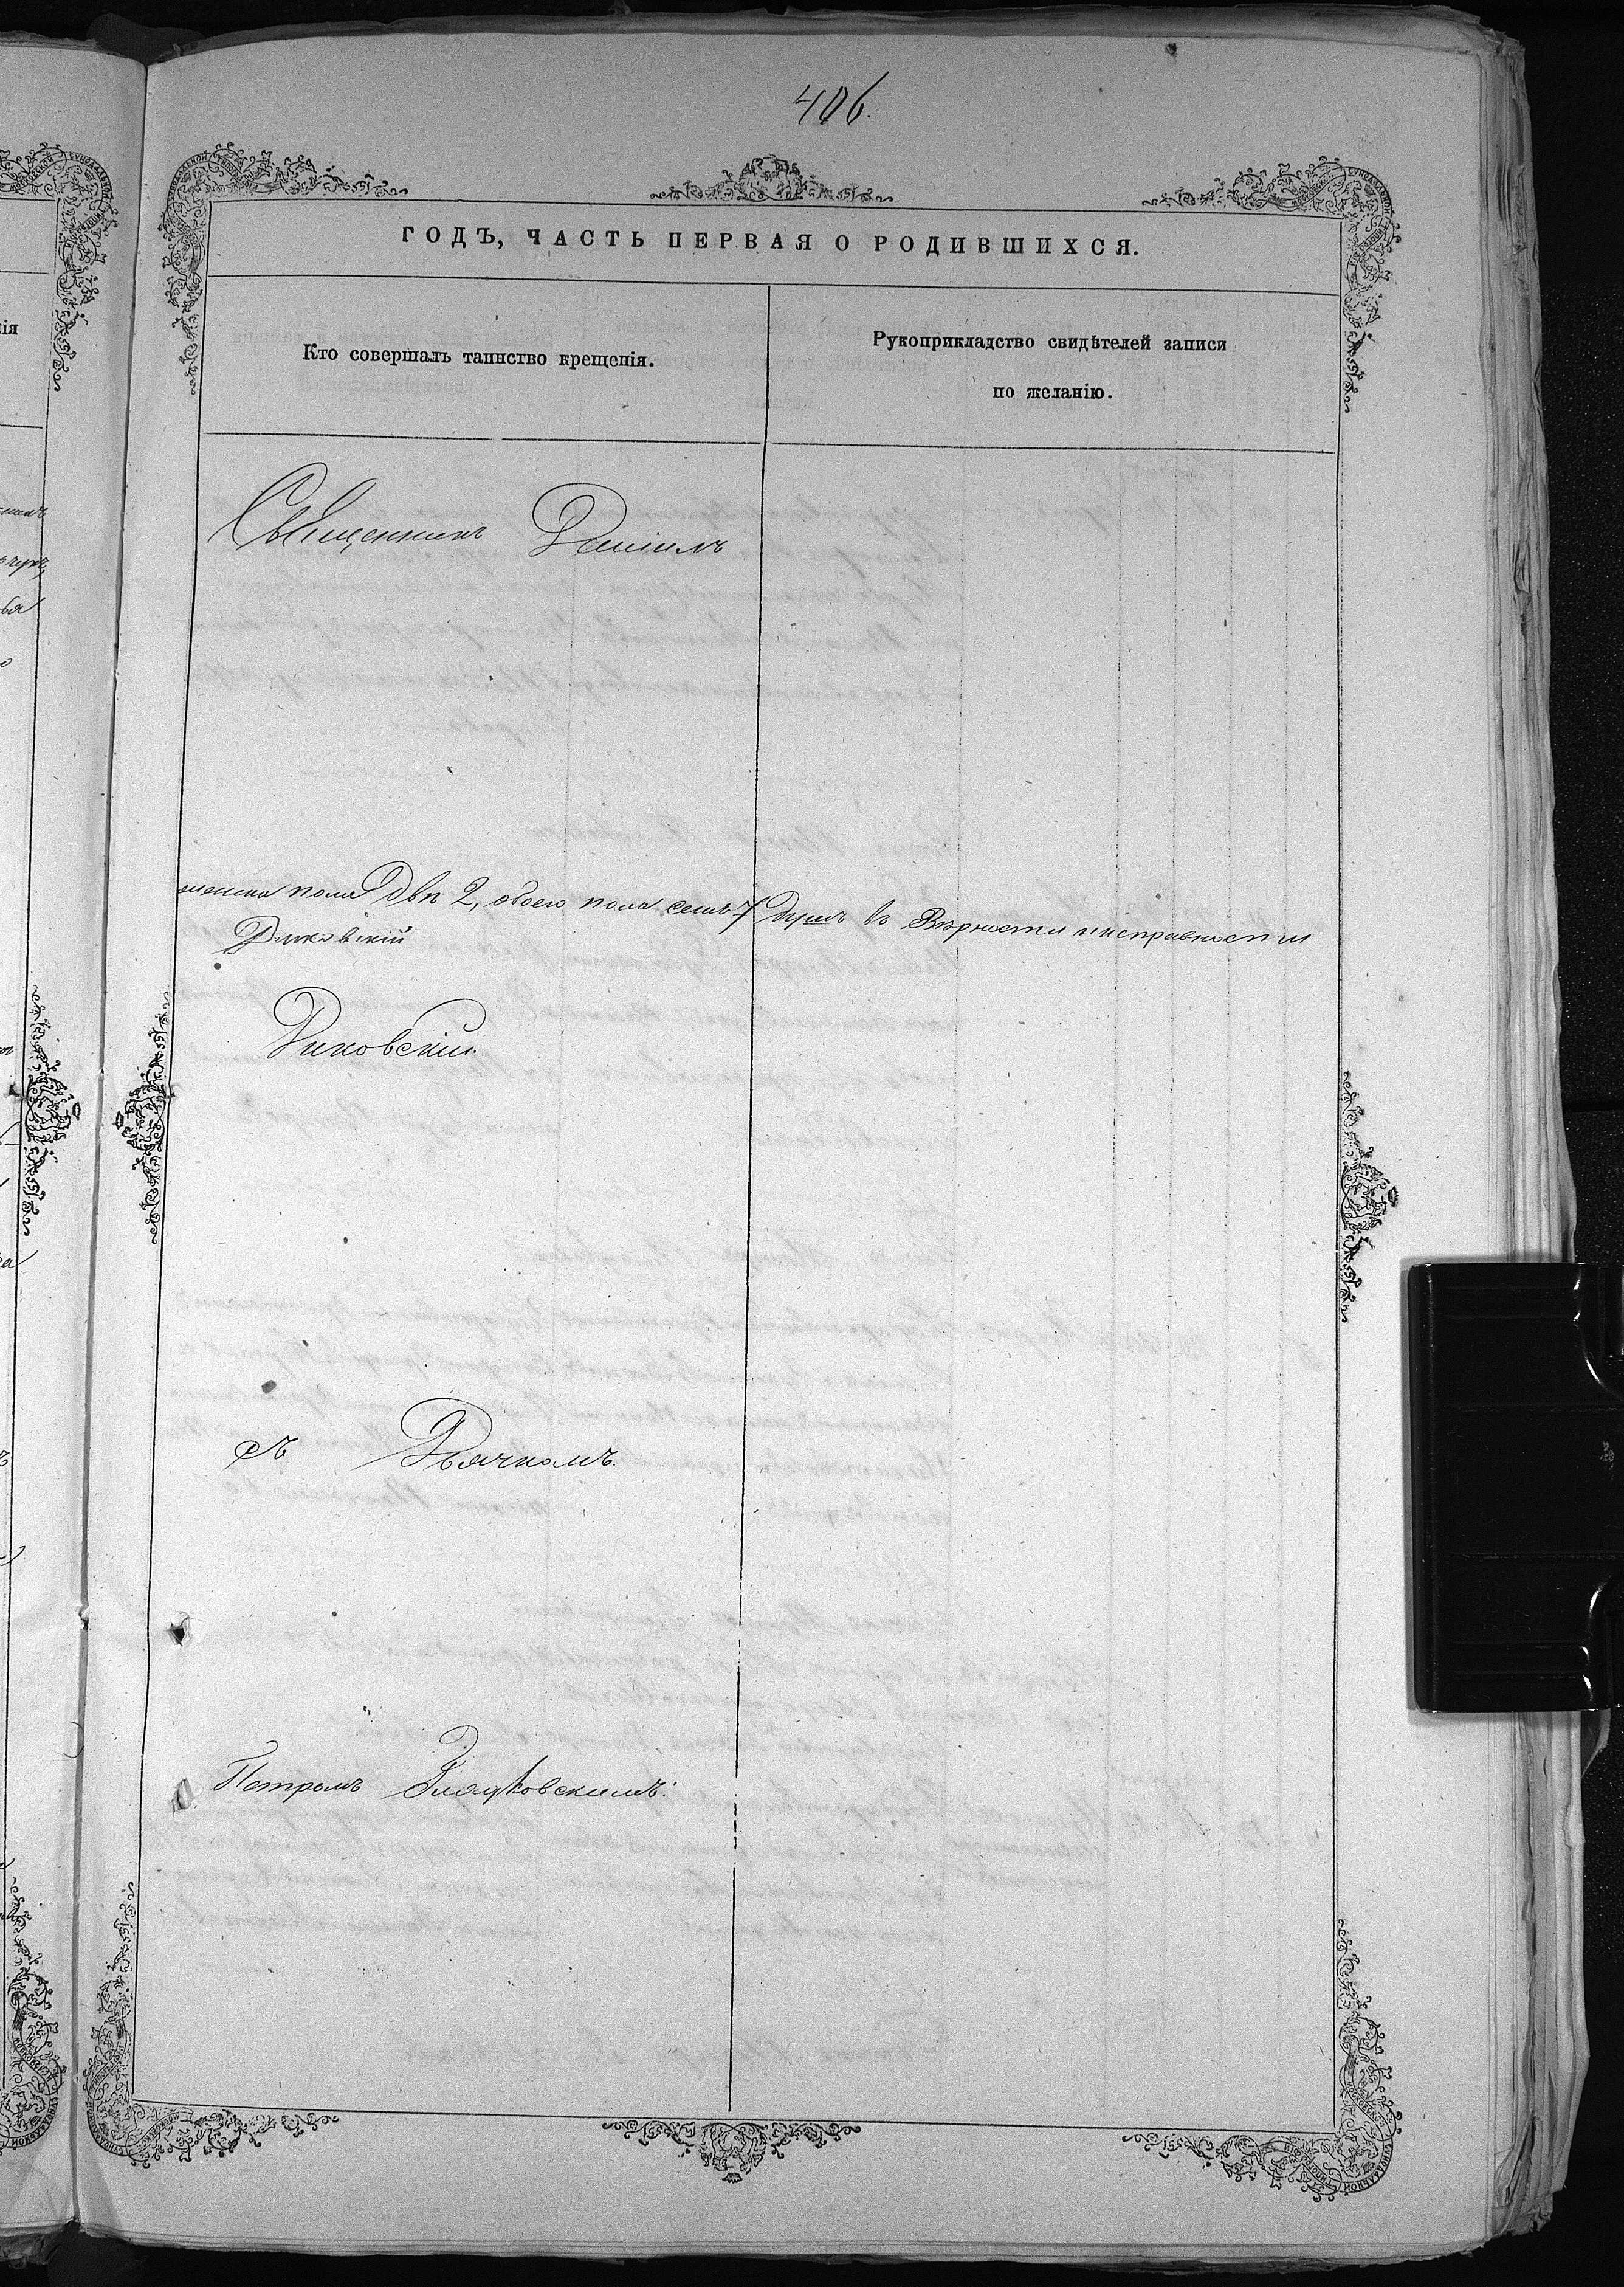 406.
ГОДЪ, ЧАСТЬ ПЕРВАЯ О РОДИВШИХСЯ.
Кто совершалъ таинство крещенія.
Рукоприкладство свидѣтелей записи
по желанію.
Священникъ Даніилъ
женска пола Двѣ 2, обоего пола семь 7 Душъ въ Вѣрности и исправности
Диковскій
Диковскій.
съ Дьячкомъ.
Петромъ